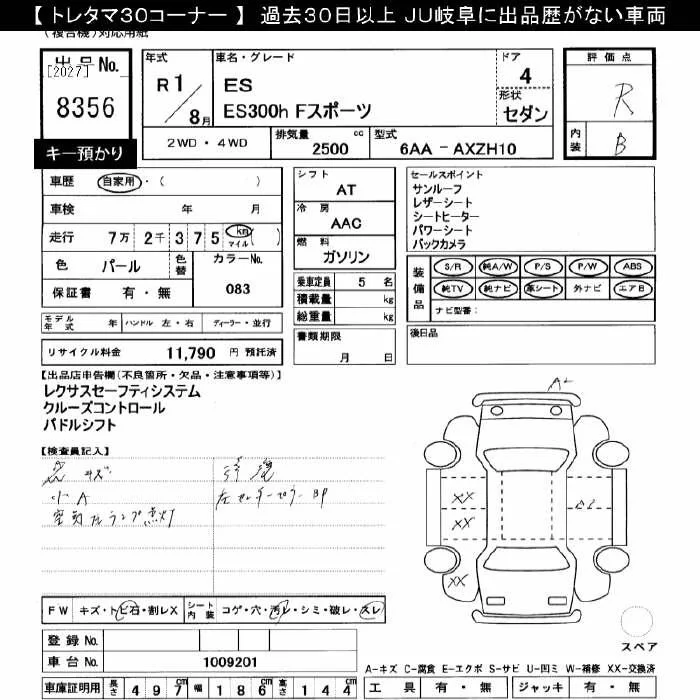 【 トレタマ30コーナー 】 過去30日以上 JU岐阜に出品歴がない車両
(複合機)対応用紙
出品No.
[2027]
8356
キー預かり
年式
R1/8月
車名・グレード
ES
ES300h Fスポーツ
ドア
4
形状
セダン
2WD・4WD
排気量 cc
2500
型式
6AA－AXZH10
評価点
R
内装
B
車歴 自家用・( )
車検 年 月
走行 7万 2千 375 km マイル ( )
色 パール 色替 カラーNo.
083
保証書 有・無
シフト
AT
冷房
AAC
燃料
ガソリン
乗車定員 5 名
積載量 kg
総重量 kg
書類期限
月 日
セールスポイント
サンルーフ
レザーシート
シートヒーター
パワーシート
バックカメラ
装備品
S/R 純A/W P/S P/W ABS
純TV 純ナビ 革シート 外ナビ エアB
ナビ型番:
後日品
モデル年式 年 ハンドル 左・右 ディーラー・並行
リサイクル料金 11,790 円 預託済
【出品店申告欄(不良箇所・欠品・注意事項等)】
レクサスセーフティシステム
クルーズコントロール
パドルシフト
【検査員記入】
小A
A2
XX
XX
XX
A2
FW キズ・トビ石・割レX シート内装 コゲ・穴・汚レ・シミ・破レ・スレ
登録No.
車台No. 1009201
車庫証明用 長さ 497cm 幅 186cm 高さ 144cm
スペア
A-キズ C-腐食 E-エクボ S-サビ U-凹ミ W-補修 XX-交換済
工具 有・無 ジャッキ 有・無